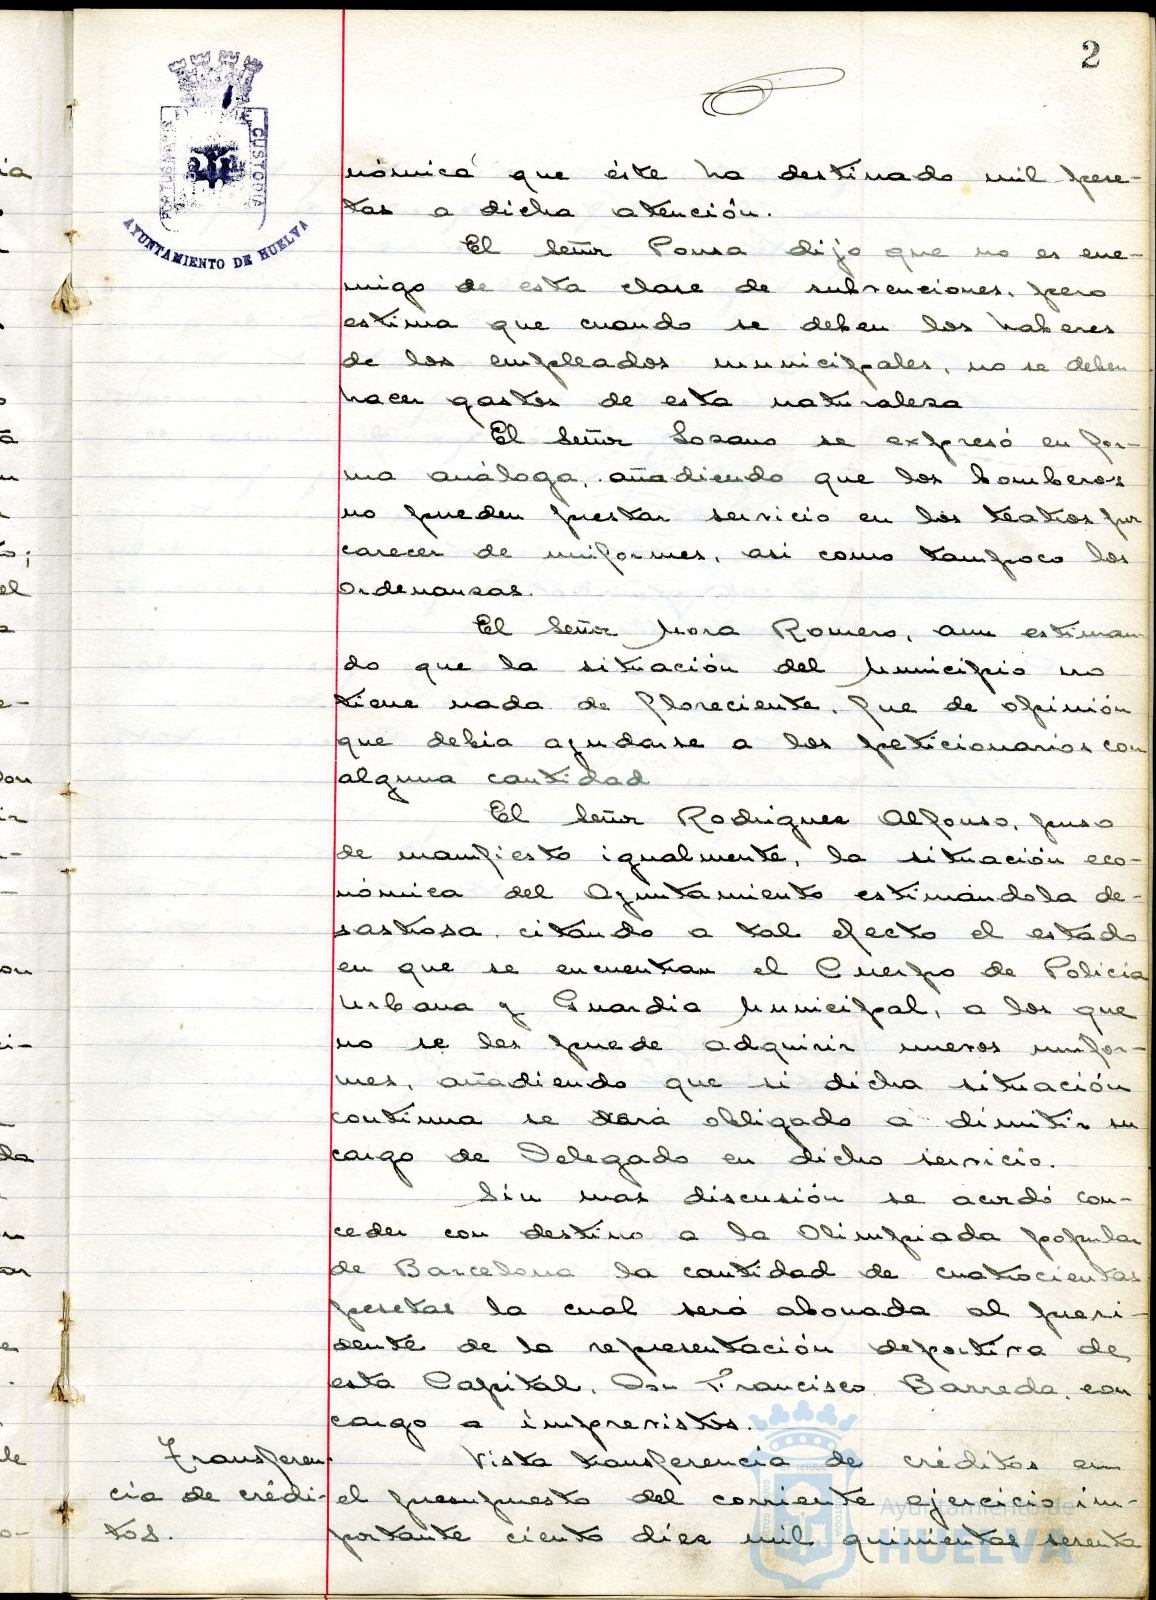 2
AYUNTAMIENTO DE HUELVA
CUSTODIA
nómica que éste ha destinado mil pese-
tas a dicha atención.
El Señor Ponsa dijo que no es ene-
migo de esta clase de subvenciones, pero
estima que cuando se deben los haberes
de los empleados municipales, no se deben
hacer gastos de esta naturaleza
El Señor Lozano se expresó en for-
ma análoga, añadiendo que los bomberos
no pueden prestar servicio en los teatros por
carecer de uniformes, asi como tampoco los
Ordenanzas.
El Señor Mora Romero, aun estiman
do que la situación del Municipio no
tiene nada de floreciente, fue de opinión
que debia ayudarse a los peticionarios con
alguna cantidad
El Señor Rodriguez Alfonso, puso
de manifiesto igualmente, la situación eco-
nómica del Ayuntamiento estimándola de-
sastrosa, citando a tal efecto el estado
en que se encuentran el Cuerpo de Policia
Urbana y Guardia Municipal, a los que
no se les puede adquirir nuevos unifor-
mes, añadiendo que si dicha situación
continua se verá obligado a dimitir su
cargo de Delegado en dicho servicio.
Sin mas discusión se acordó con-
ceder con destino a la Olimpiada popular
de Barcelona la cantidad de cuatrocientas
pesetas la cual será abonada al presi-
dente de la representación deportiva de
esta Capital, Don Francisco Barreda, con
cargo a imprevistos.
Transferen-
cia de crédi-
tos.
Vista transferencia de créditos en
el presupuesto del corriente ejercicio im-
portante ciento diez mil quinientas sesenta
Ayuntamiento de
HUELVA